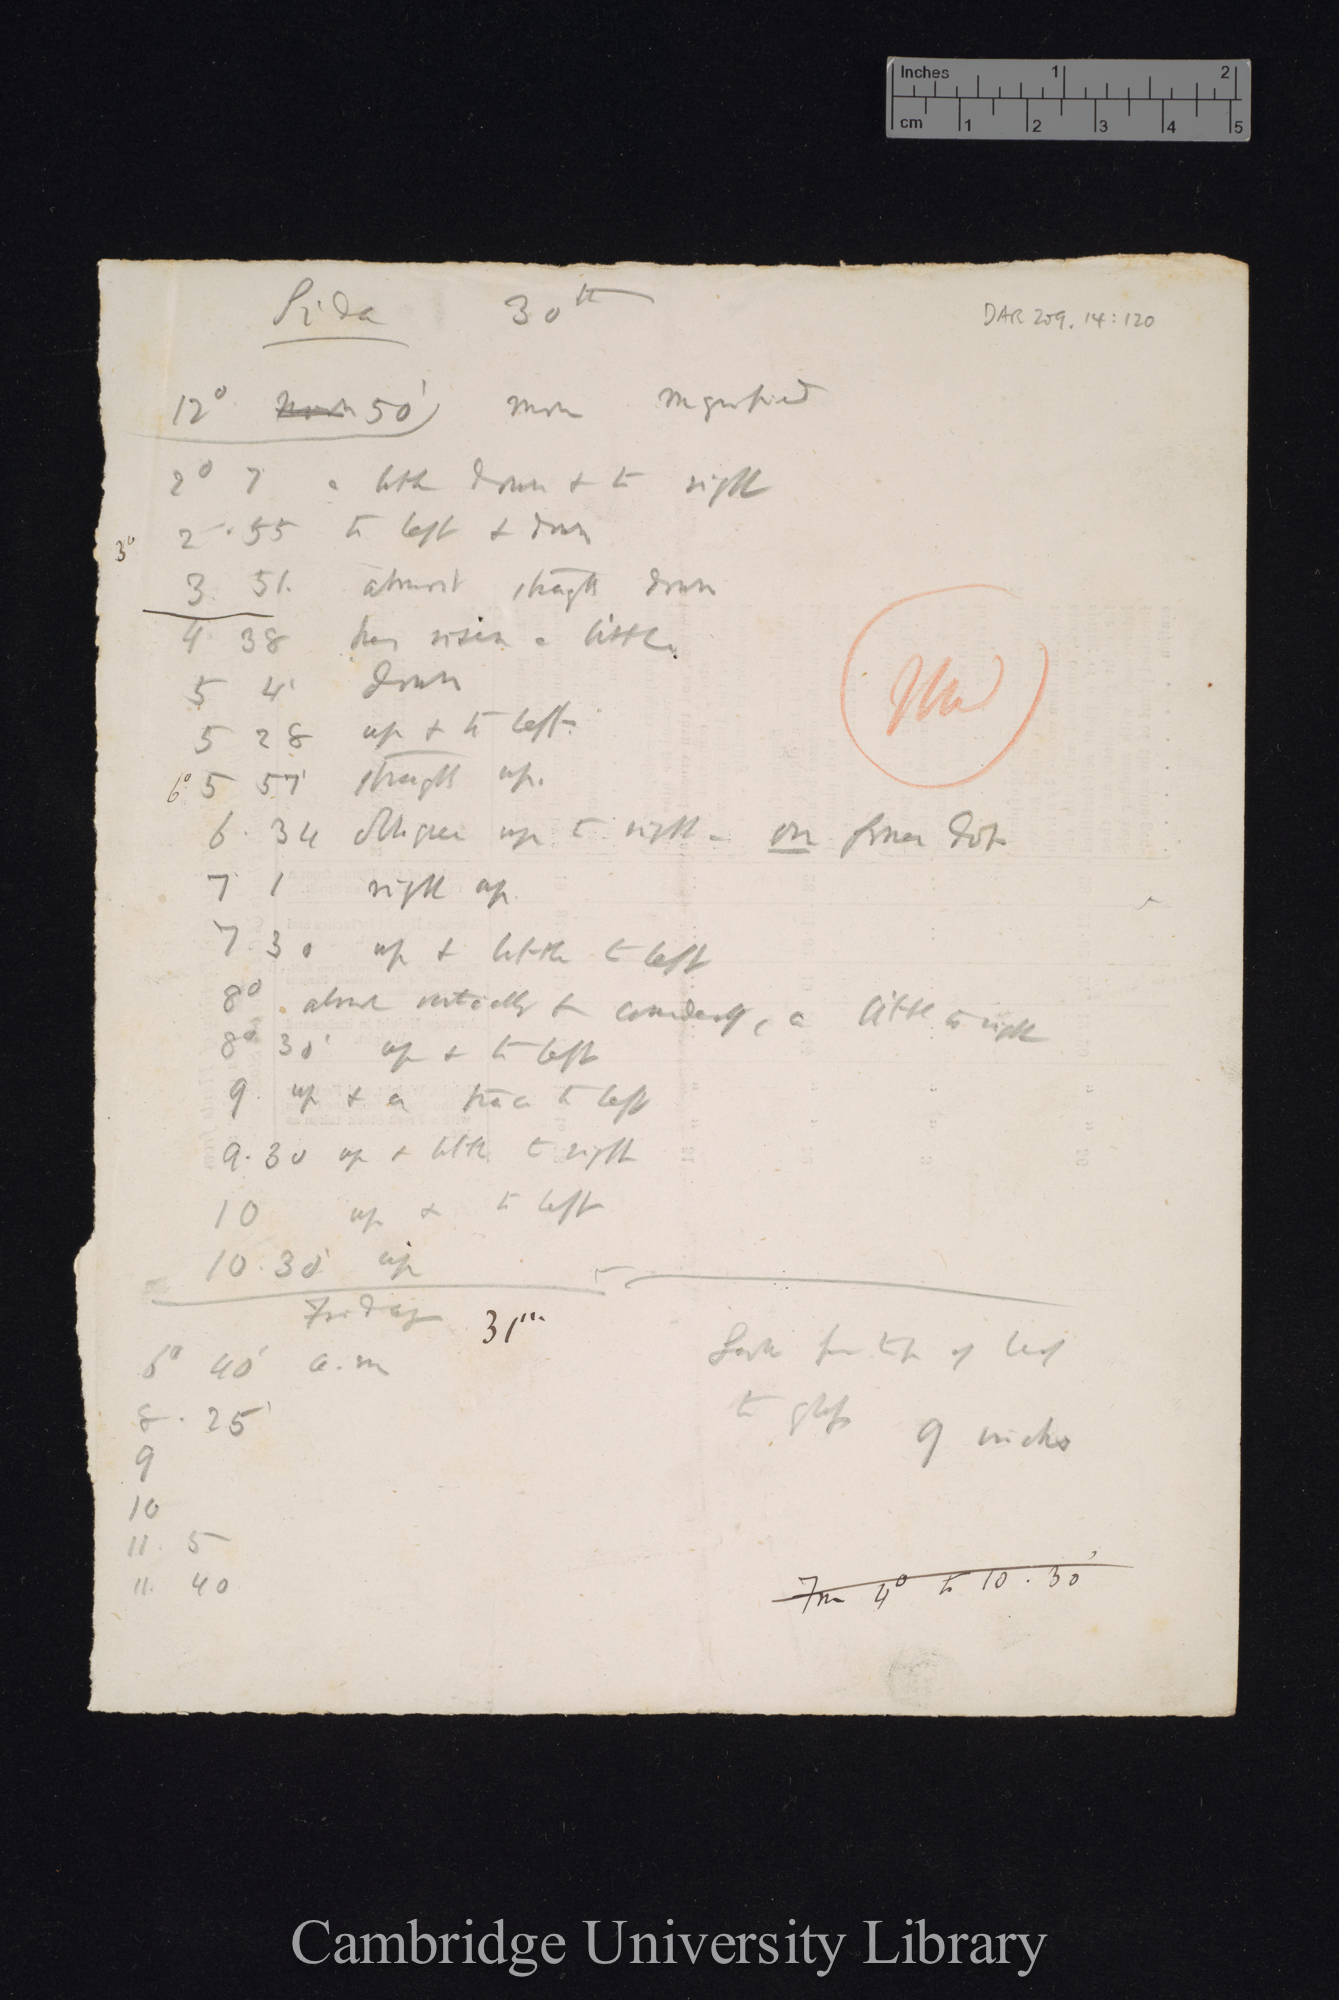 Inches 1 2
cm 1 2 3 4 5
Sida 30th
DAR 209.14:120
12° Noon 50' more magnified
2° 7' a little down & to right
2 . 55 to left & down
3°
3. 51. almost straight down
4 38 has risen a little.
5 4' down
5 28 up & to left.
6° 5 57' straight up.
6. 34 oblique up to right – on former dot
7 1 right up.
7. 30 up & little to left
8° . almost vertically & considerably, a little to right
8° 30' up & to left
9. up & a trace to left
9. 30 up & little to right
10 up & to left
10. 30' up
Friday 31st
6° 40' a.m
8 . 25'
9
10
11. 5
11. 40
from tip of leaf
to glass 9 inches
From 4° to 10 . 30'
Cambridge University Library